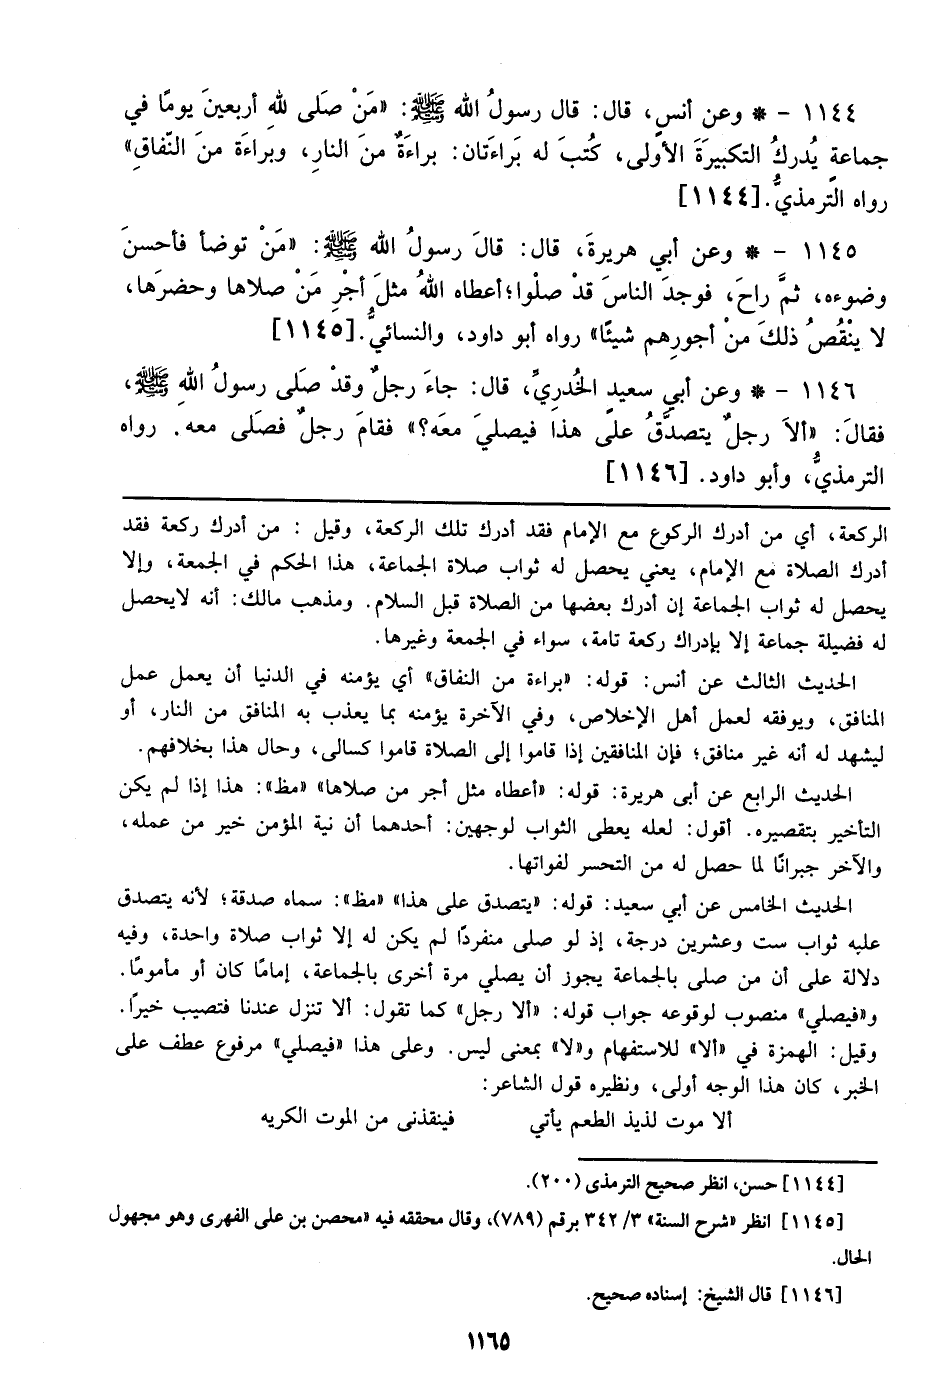 ١١٤٤ - * وعن أنسٍ، قال: قال رسولُ الله ﷺ: «مَنْ صَلى للهِ أربعينَ يومًا في
جماعةٍ يُدركُ التكبيرَةَ الأولى، كُتبَ له بَراءَتان: براءَةٌ منَ النارِ، وبراءَة منَ النّفاقِ»
رواه الترمذيُّ. [١١٤٤]
١١٤٥ - * وعن أبي هريرةَ، قال: قالَ رسولُ الله ﷺ: «مَنْ توضأ فأحسنَ
وضوءه، ثمَّ راحَ، فوجدَ الناسَ قدْ صلوا؛ أعطاه اللهُ مثلَ أجْرِ مَنْ صلاها وحضرَها،
لا ينْقُصُ ذلكَ منْ أجورِهم شيئًا» رواه أبو داود، والنسائيُّ. [١١٤٥]
١١٤٦ - * وعن أبي سعيدٍ الخُدريِّ، قال: جاءَ رجلٌ وقدْ صَلى رسولُ اللهِ ﷺ،
فقالَ: «ألاَ رجلٌ يتصدَّقُ على هذا فيصليَ معَه؟» فقامَ رجلٌ فصَلى معه. رواه
الترمذيُّ، وأبو داود. [١١٤٦]
الركعة، أي من أدرك الركوع مع الإمام فقد أدرك تلك الركعة، وقيل : من أدرك ركعة فقد
أدرك الصلاة مع الإمام، يعني يحصل له ثواب صلاة الجماعة، هذا الحكم في الجمعة، وإلا
يحصل له ثواب الجماعة إن أدرك بعضها من الصلاة قبل السلام. ومذهب مالك: أنه لايحصل
له فضيلة جماعة إلا بإدراك ركعة تامة، سواء في الجمعة وغيرها.
الحديث الثالث عن أنس: قوله: «براءة من النفاق» أي يؤمنه في الدنيا أن يعمل عمل
المنافق، ويوفقه لعمل أهل الإخلاص، وفي الآخرة يؤمنه بما يعذب به المنافق من النار، أو
ليشهد له أنه غير منافق؛ فإن المنافقين إذا قاموا إلى الصلاة قاموا كسالى، وحال هذا بخلافهم.
الحديث الرابع عن أبى هريرة: قوله: «أعطاه مثل أجر من صلاها» «مظ»: هذا إذا لم يكن
التأخير بتقصيره. أقول: لعله يعطى الثواب لوجهين: أحدهما أن نية المؤمن خير من عمله،
والآخر جبرانًا لما حصل له من التحسر لفواتها.
الحديث الخامس عن أبي سعيد: قوله: «يتصدق على هذا» «مظ»: سماه صدقة؛ لأنه يتصدق
عليه ثواب ست وعشرين درجة، إذ لو صلى منفردًا لم يكن له إلا ثواب صلاة واحدة، وفيه
دلالة على أن من صلى بالجماعة يجوز أن يصلي مرة أخرى بالجماعة، إمامًا كان أو مأمومًا.
و«فيصلي» منصوب لوقوعه جواب قوله: «ألا رجل» كما تقول: ألا تنزل عندنا فتصيب خيرًا.
وقيل: الهمزة في «ألا» للاستفهام و«لا» بمعنى ليس. وعلى هذا «فيصلي» مرفوع عطف على
الخبر، كان هذا الوجه أولى، ونظيره قول الشاعر:
ألا موت لذيذ الطعم يأتي فينقذنى من الموت الكريه
[١١٤٤] حسن، انظر صحيح الترمذى (٢٠٠).
[١١٤٥] انظر «شرح السنة» ٣/ ٣٤٢ برقم (٧٨٩)، وقال محققه فيه «محصن بن على الفهرى وهو مجهول
الحال.
[١١٤٦] قال الشيخ: إسناده صحيح.
١١٦٥